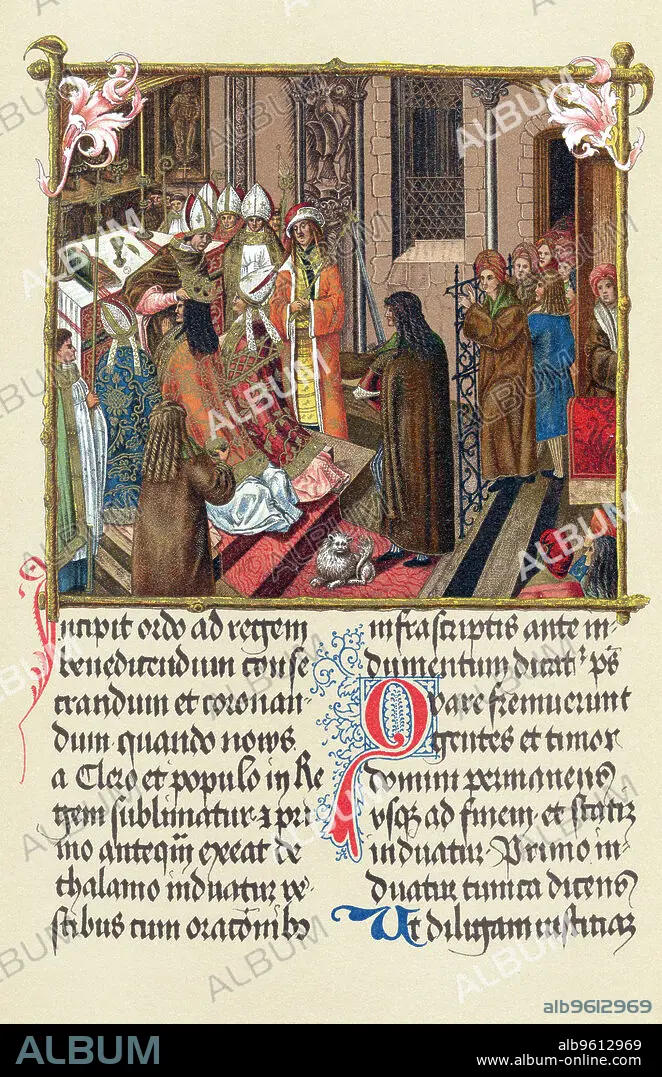 Incipit ordo ad regem
benedicendum conse
crandum et coronan-
dum quando novus
a Clero et populo in Re
gem sublimatur. et pri
mo anteqm̄ exeat de
thalamo induatur ve-
stibus cum oratōnibꝯ
infrascriptis ante in-
dumentum dicatꝛ ps̄
Quare fremuerunt
gentes et timor
domini permanens
vsqꝫ ad finem et statiꝫ
induatur. Primo in-
duatur tunica dicens
Ut diligam iustitiaꝫ
ALBUM
alb9612969
ALBUM
alb9612969
www.album-online.com